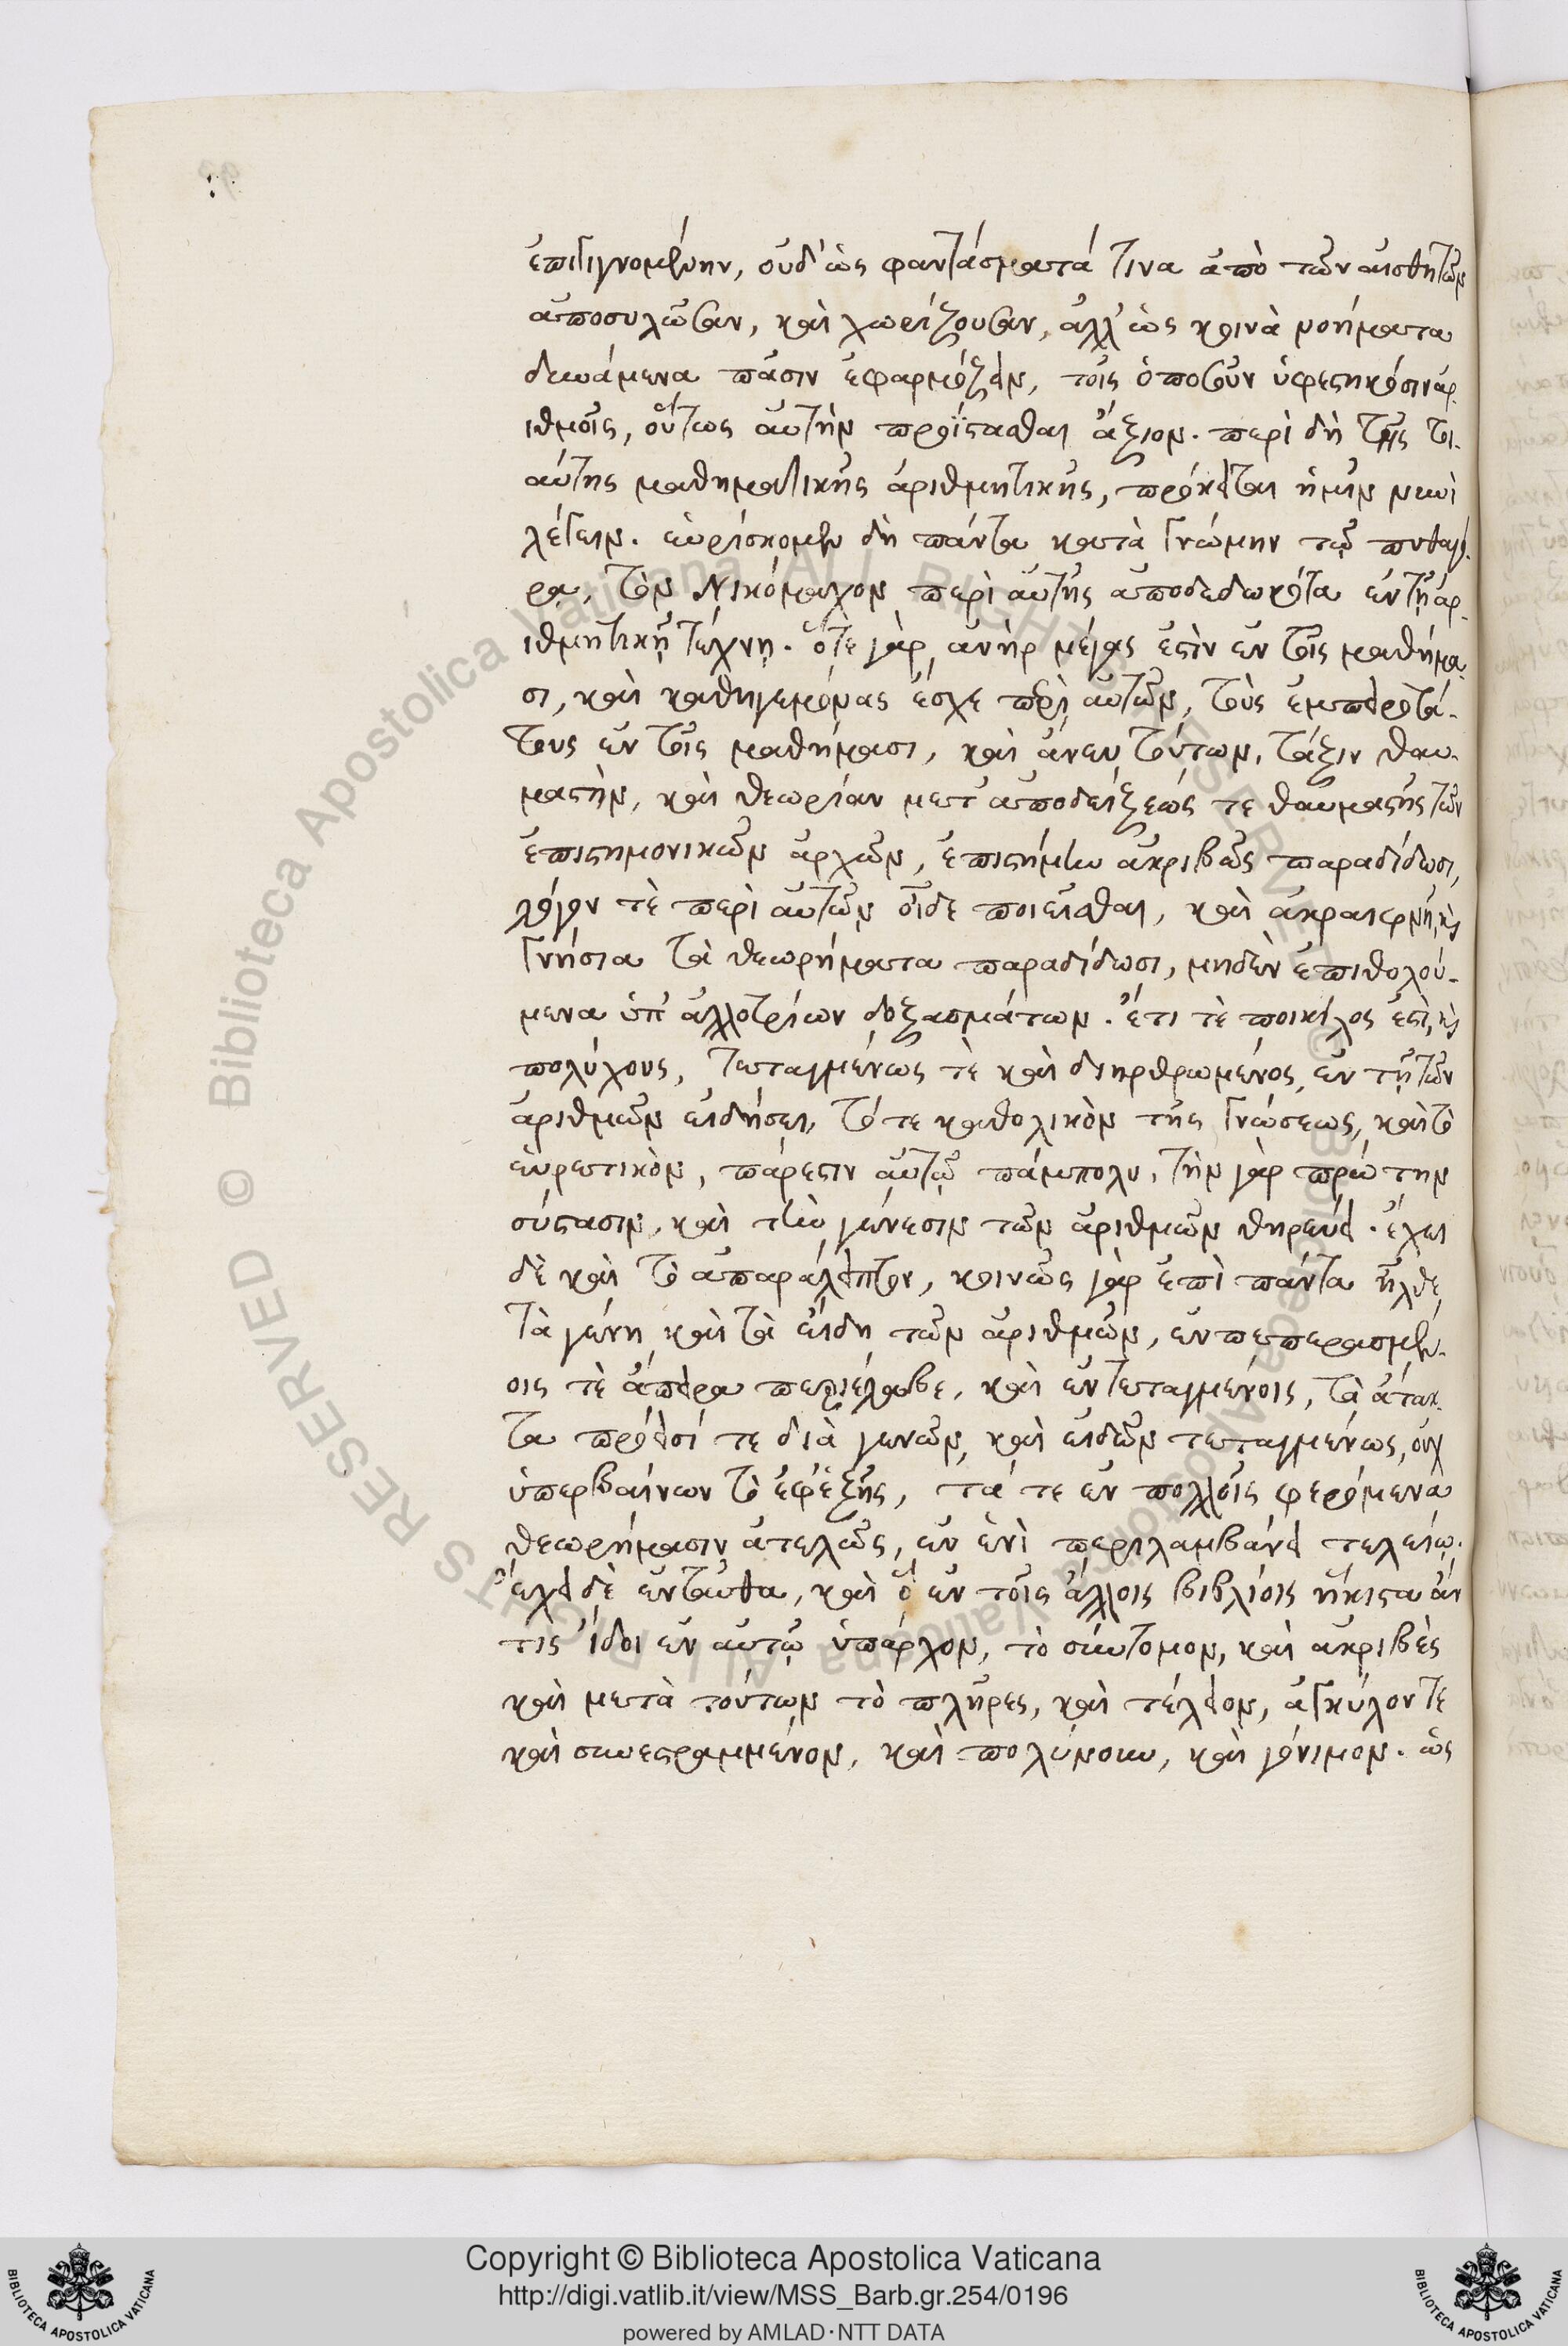 ἐπιγιγνομένην, οὐδ' ὡς φαντάσματά τινα ἀπὸ τῶν αἰσθητῶν
ἀποσυλῶσαν, καὶ χωρίζουσαν, ἀλλ' ὡς κοινὰ νοήματα
δυνάμενα πᾶσιν ἐφαρμόζειν, τοῖς ὁποσοῦν ὑφεστηκόσιν ἀρ-
ιθμοῖς, οὕτως αὐτὴν προΐστασθαι ἄξιον. περὶ δὴ τῆς τοι-
αύτης μαθηματικῆς ἀριθμητικῆς, πρόκειται ἡμῖν νυνὶ
λέγειν. εὑρίσκομεν δὴ πάντα κατὰ γνώμην τῷ πυθαγό-
ρᾳ, τὸν Νικόμαχον περὶ αὐτῆς ἀποδεδωκότα ἐν τῇ ἀρ-
ιθμητικῇ τέχνῃ. ὅτε γὰρ ἀνὴρ μέγας ἐστὶν ἐν τοῖς μαθήμα-
σι, καὶ καθηγεμόνας ἔσχε περὶ αὐτῶν, τοὺς ἐμπειροτά-
τους ἐν τοῖς μαθήμασι, καὶ ἄνευ τούτων, τάξιν θαυ-
μαστὴν, καὶ θεωρίαν μετ' ἀποδείξεώς τε θαυμαστῆς τῶν
ἐπιστημονικῶν ἀρχῶν, ἐπιστήμην ἀκριβῶς παραδίδωσι,
λόγον τὲ περὶ αὐτῶν οἶδε ποιεῖσθαι, καὶ ἀκραιφνῆ, καὶ
γνήσια τὰ θεωρήματα παραδίδωσι, μηδὲν ἐπιθολού-
μενα ὑπ' ἀλλοτρίων δοξασμάτων. ἔτι τὲ ποικίλος ἐστὶ, καὶ
πολύχους, τεταγμένως τὲ καὶ διηρθρωμένος ἐν τῇ τῶν
ἀριθμῶν εἰδήσει, τό τε καθολικὸν τῆς γνώσεως, καὶ τὸ
εὑρετικὸν, πάρεστιν αὐτῷ πάμπολυ, τὴν γὰρ πρώτην
σύστασιν, καὶ τὴν γένεσιν τῶν ἀριθμῶν θηρεύει. ἔχει
δὲ καὶ τὸ ἀπαράλειπτον, κοινῶς γὰρ ἐπὶ πάντα ἦλθε
τὰ γένη καὶ τὰ εἴδη τῶν ἀριθμῶν, ἐν πεπερασμέν-
οις τὲ ἄπειρα περιέλαβε, καὶ ἐν τεταγμένοις, τὰ ἄτακ-
τα πρόεισί τε διὰ γενῶν, καὶ εἰδῶν τεταγμένως, οὐχ
ὑπερβαίνων τὸ ἐφεξῆς, τά τε ἐν πολλοῖς φερόμενα
θεωρήμασιν ἀτελῶς, ἐν ἑνὶ περιλαμβάνει τελείῳ.
ἔχει δὲ ἐνταῦθα, καὶ ὃ ἐν τοῖς ἄλλοις βιβλίοις ἥκιστα ἄν
τις ἴδοι ἐν αὐτῷ ὑπάρχον, τὸ σύντομον, καὶ ἀκριβὲς
καὶ μετὰ τούτων τὸ πλῆρες, καὶ τέλειον, ἀγκύλον τε
καὶ συνεστραμμένον, καὶ πολύνουν, καὶ γόνιμον. ὡς
Copyright © Biblioteca Apostolica Vaticana
http://digi.vatlib.it/view/MSS_Barb.gr.254/0196
powered by AMLAD·NTT DATA